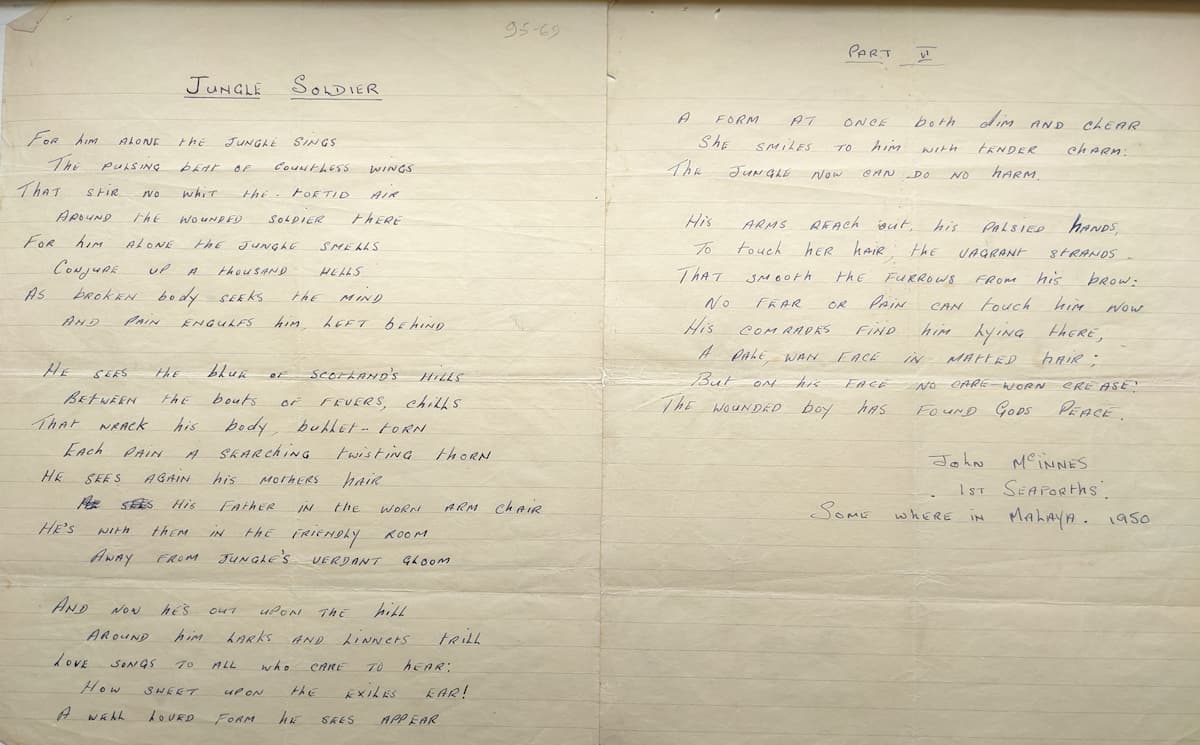 95-69
JUNGLE SOLDIER
FOR him ALONE the JUNGLE SINGS
The PULSING bEAT OF COUNTLESS WINGS
THAT StiR NO WhiT the FOETID AIR
AROUND the WOUNDED SOLDIER tHERE
FOR him ALONE the JUNGLE SMELLS
CONJURE UP A thOUSAND HELLS
AS bROKEN body SEEKS the MIND
AND PAIN ENGULFS him, LEFT bEhIND
HE SEES the bLUE OF SCOTLAND'S HILLS
BETWEEN the bouts OF FEVERS, chILLS
THAT WRACK his body, buLLEt-tORN
EACh PAIN A SEARChING twistING thORN
HE SEES AGAIN his MOthERS hAIR
His FAtHER IN the WORN ARM ChAIR
HE'S WITH thEM IN thE FRIENDLY ROOM
AWAY FROM JUNGLE'S VERDANT GLOOM
AND NOW hE'S OUT UPON THE hiLL
AROUND him LARKS AND LINNETS tRILL
LOVE SONGS TO ALL who CARE TO hEAR:
HOW SWEET UPON thE EXILES EAR!
A WELL LOVED FORM hE SEES APPEAR
PART VI
A FORM AT ONCE both dim AND CLEAR
ShE SMILES TO him with tENDER ChARM:
ThE JUNGLE NOW CAN DO NO hARM.
His ARMS REACh out, his PALSIED hANDS,
To touch hER hAIR, thE VAGRANT StRANDS
THAT SMOOth thE FURROWS FROM his bROW:
NO FEAR OR PAIN CAN touch him NOW
His COMRADES FIND him LyING thERE,
A PALE, WAN FACE IN MATTED hAIR;
But ON his FACE NO CARE-WORN CREASE:
THE WOUNDED boy hAS FOUND GODS PEACE.
John McINNES
1ST SEAFORThS.
SOME WHERE IN MALAYA. 1950